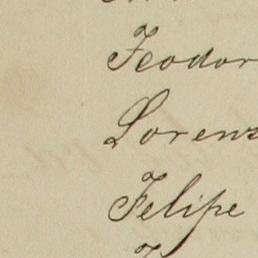 Feodor
Lorenz
Felipe